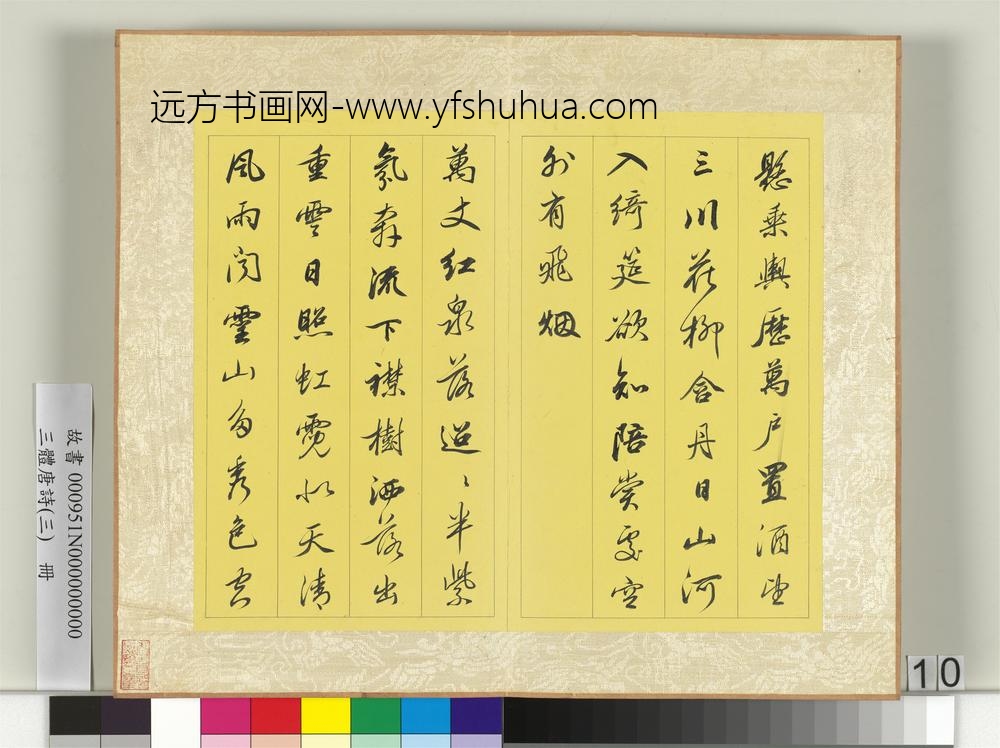 远方书画网-www.yfshuhua.com
懸乘輿歷萬戶置酒望
三川花柳含丹日山河
入綺筵欲知陪賞處空
外有飛烟
萬丈紅泉落迢〻半紫
氛奔流下襟樹洒落出
重雲日照虹霓似天清
風雨聞靈山多秀色空
故書 000951N000000000
三體唐詩(三) 冊
10